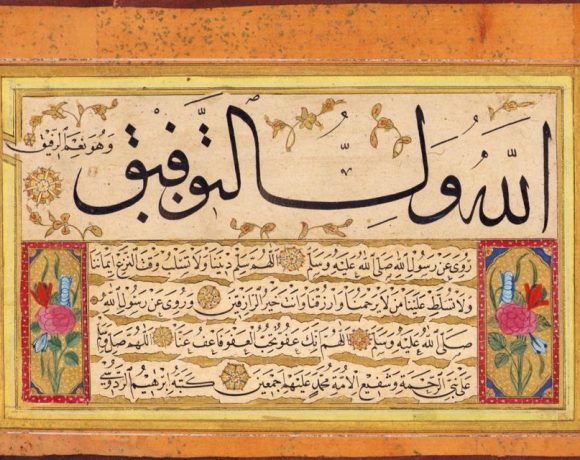 اللّٰه ولي التوفيق
وهو نعم الرفيق
روي عن رسول الله صلى الله عليه وسلم اللهم سلم ديننا ولا تسلب وقت النزع ايماننا
ولا تسلط علينا من لا يرحمنا وارزقنا وانت خير الرازقين وروي عن رسول الله
صلى الله عليه وسلم اللهم انك عفو تحب العفو فاعف عنا اللهم صل وسلم
على نبي الرحمة وشفيع الامة محمد اجمعين كتبه ابرهيم الردوسي